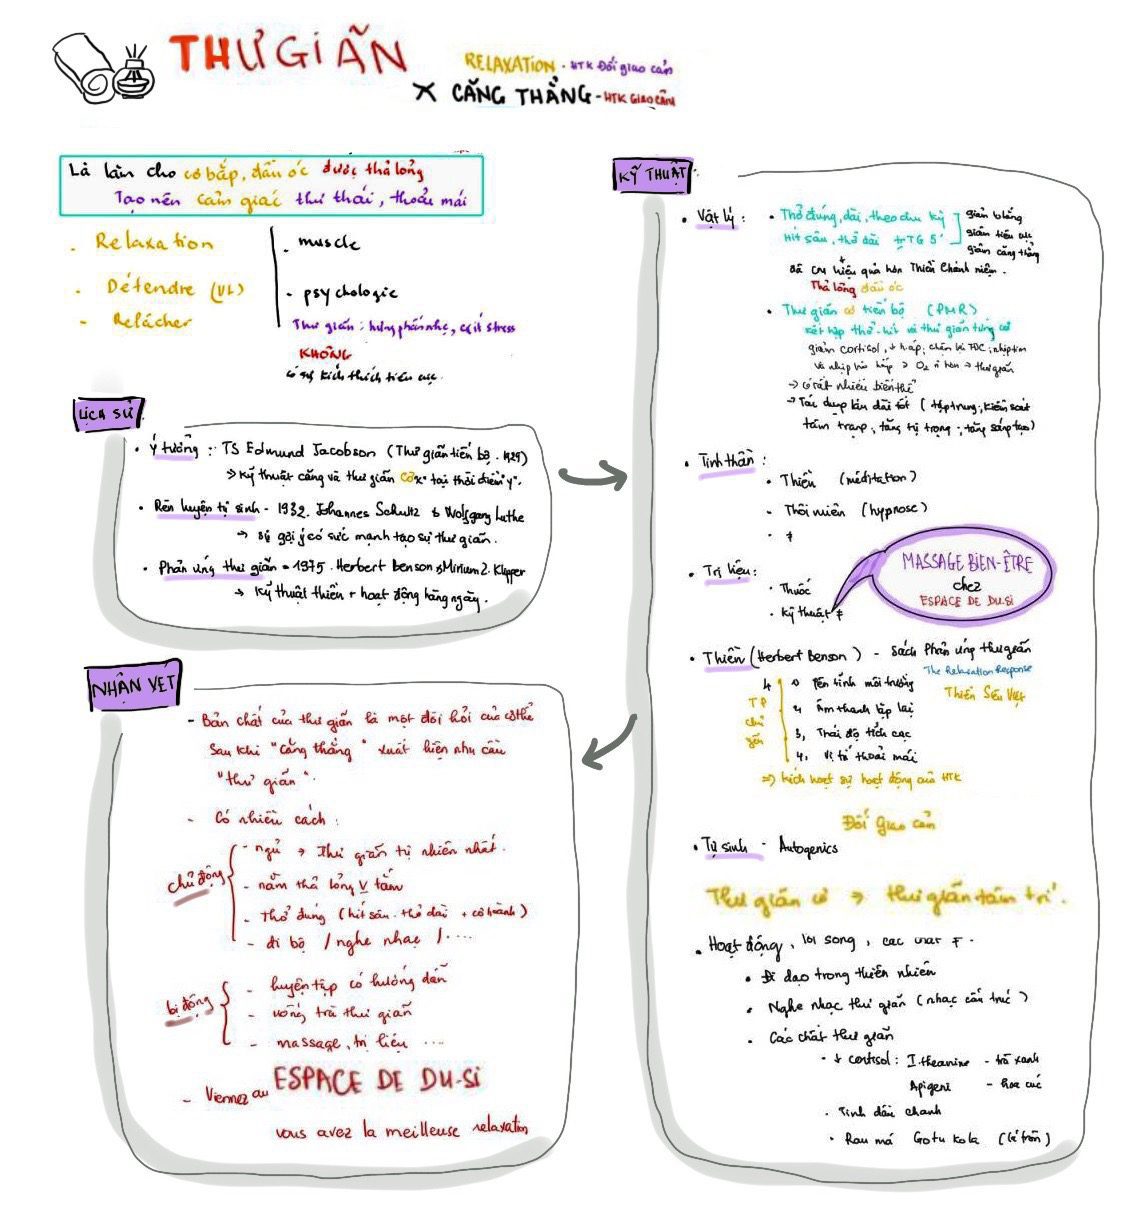 THƯ GIÃN
RELAXATION - HTK Đối giao cảm
X CĂNG THẲNG - HTK GIAO CẢM
Là làm cho cơ bắp, đầu óc được thả lỏng
Tạo nên cảm giác thư thái, thoải mái
- Relaxation
- Détendre (VL)
- Relâcher
- muscle
- psychologic
Thư giãn: hưng phấn nhẹ, ex ít stress
KHÔNG
có sự kích thích tiêu cực.
LỊCH SỬ
• Ý tưởng: TS Edmund Jacobson (Thư giãn tiến bộ. 1929)
→ Kỹ thuật căng và thư giãn cơ "x" tại thời điểm "y".
• Rèn luyện tự sinh - 1932. Johannes Schultz & Wolfgang Luthe
→ sự gợi ý có sức mạnh tạo sự thư giãn.
• Phản ứng thư giãn = 1975. Herbert Benson & Mirium Z. Klipper
→ Kỹ thuật thiền + hoạt động hằng ngày.
NHẬN XÉT
- Bản chất của thư giãn là một đòi hỏi của cơ thể
sau khi "căng thẳng" xuất hiện nhu cầu
"thư giãn".
- Có nhiều cách:
chủ động
- ngủ → Thư giãn tự nhiên nhất.
- nằm thả lỏng V tắm
- Thở đúng (hít sâu. thở dài + cơ hoành)
- đi bộ / nghe nhạc / ....
bị động
- luyện tập có hướng dẫn
- uống trà thư giãn
- massage, trị liệu ....
- Viennez au ESPACE DE DU-SI
vous avez la meilleuse relaxation
KỸ THUẬT:
• Vật lý:
• Thở đúng, dài, theo chu kỳ
Hít sâu, thở dài tr TG 5'
giảm lo lắng
giảm tiêu cực
giảm căng thẳng
đã CM hiệu quả hơn Thiền chánh niệm.
Thả lỏng đầu óc
• Thư giãn cơ tiến bộ (PMR)
kết hợp thở-hít và thư giãn từng cơ
giảm cortisol, ↓ h.áp, nhịp tim
và nhịp hô hấp → thư giãn
→ có rất nhiều biến thể
→ Tác dụng lâu dài tốt (tập trung; kiểm soát
tâm trạng; tăng tự trọng; tăng sáng tạo)
• Tinh thần:
• Thiền (méditation)
• Thôi miên (hypnose)
• ≠
• Trị liệu:
• Thuốc
• Kỹ thuật ≠
MASSAGE BIEN-ÊTRE
chez
ESPACE DE DU-SI
• Thiền (Herbert Benson) - Sách Phản ứng thư giãn
The Relaxation Response
Thiền Sên Việt
4 TP chủ yếu
1, Yên tĩnh môi trường
2, Âm thanh lặp lại
3, Thái độ tích cực
4, Vị trí thoải mái
⇒ kích hoạt sự hoạt động của HTK
Đối Giao cảm
• Tự sinh - Autogenics
Thư giãn cơ → thư giãn tâm trí.
• Hoạt động, lối sống, các chất ≠.
• Đi dạo trong thiên nhiên
• Nghe nhạc thư giãn (nhạc cấu trúc)
• Các chất thư giãn
• ↓ cortisol: I.theanine - trà xanh
Apigeni - hoa cúc
• Tinh dầu chanh
• Rau má Gotu Kola (lá tròn)